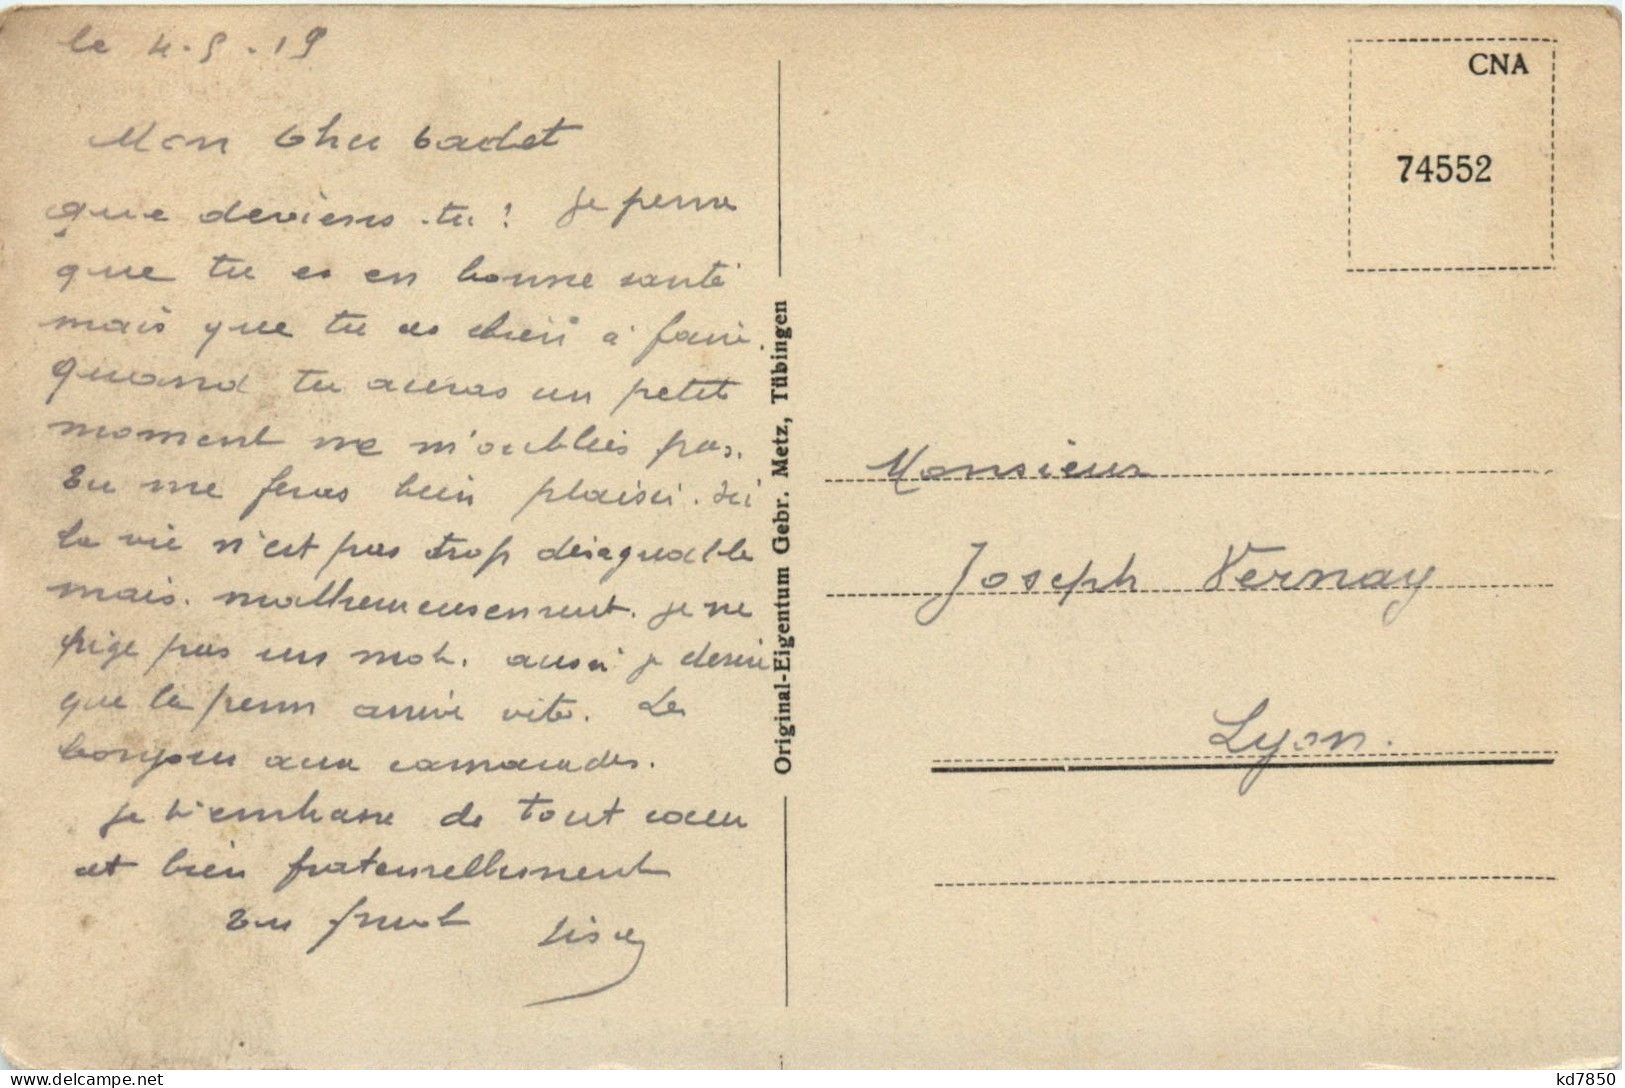 le 4-5-19
Mon Cher Cadet
que deviens-tu? Je pense
que tu es en bonne santé
mais que tu as bien à faire.
Quand tu auras un petit
moment ne m'oublies pas.
Tu me feras bien plaisir. Ici
la vie n'est pas trop désagréable
mais. malheureusement. je ne
pige pas un mot. aussi je désire
que la perm arrive vite. Le
bonjour aux camarades.
Je t'embrasse de tout coeur
et bien fraternellement
Ton frérot
Original-Eigentum Gebr. Metz, Tübingen
CNA
74552
Monsieur
Joseph Vernay
Lyon.
kd7850